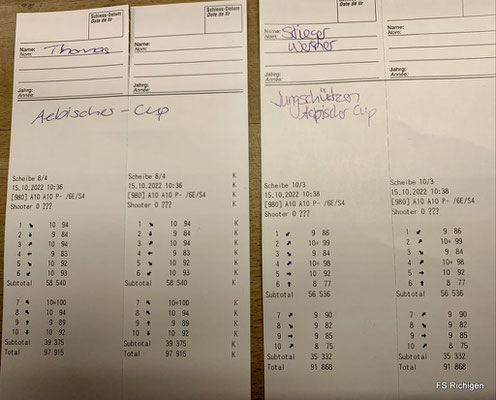 Schiess-Datum
Date de tir
Name:
Nom:
Thomas
Jahrg:
Année:
Aebischer-Cup
Scheibe 8/4
15.10.2022 10:36
[980] A10 A10 P- /6E/S4
Shooter 0 ???
1 10 94
2 9 84
3 10 94
4 9 83
5 10 92
6 10 93
Subtotal 58 540
7 10*100
8 10 94
9 9 89
10 10 92
Subtotal 39 375
Total 97 915
Scheibe 8/4 K
15.10.2022 10:36 K
[980] A10 A10 P- /6E/S4 K
Shooter 0 ??? K
1 10 94 K
2 9 84 K
3 10 94 K
4 9 83 K
5 10 92 K
6 10 93 K
Subtotal 58 540 K
7 10*100 K
8 10 94 K
9 9 89 K
10 10 92 K
Subtotal 39 375 K
Total 97 915 K
Schiess-Datum
Date de tir
Name:
Nom:
Stieger
Werner
Jahrg:
Année:
Jungschützen
Cup
Scheibe 10/3
15.10.2022 10:38
[980] A10 A10 P- /6E/S4
Shooter 0 ???
1 9 86
2 10* 99
3 9 84
4 10* 98
5 10 92
6 8 77
Subtotal 56 536
7 9 90
8 9 82
9 9 85
10 8 75
Subtotal 35 332
Total 91 868
Scheibe 10/3
15.10.2022 10:38
[980] A10 A10 P- /6E/S4
Shooter 0 ???
1 9 86
2 10* 99
3 9 84
4 10* 98
5 10 92
6 8 77
Subtotal 56 536
7 9 90
8 9 82
9 9 85
10 8 75
Subtotal 35 332
Total 91 868
FS Richigen